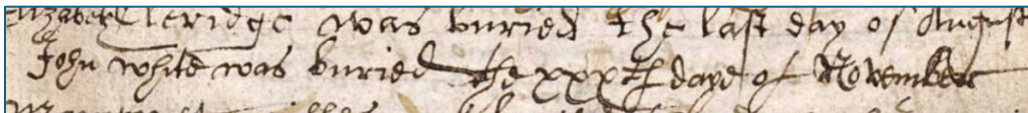 Elizabeth leridge was buried the last day of August
John white was buried the xxxth daye of November